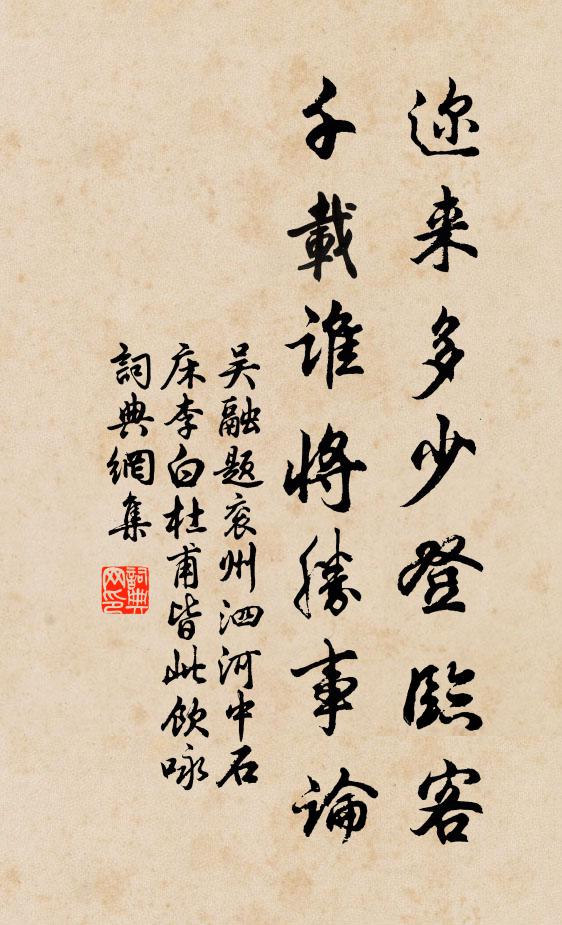 迩来多少登臨客
千載誰将勝事論
吴融题兖州泗河中石
床李白杜甫皆此饮咏
詞典網集
詞典网印